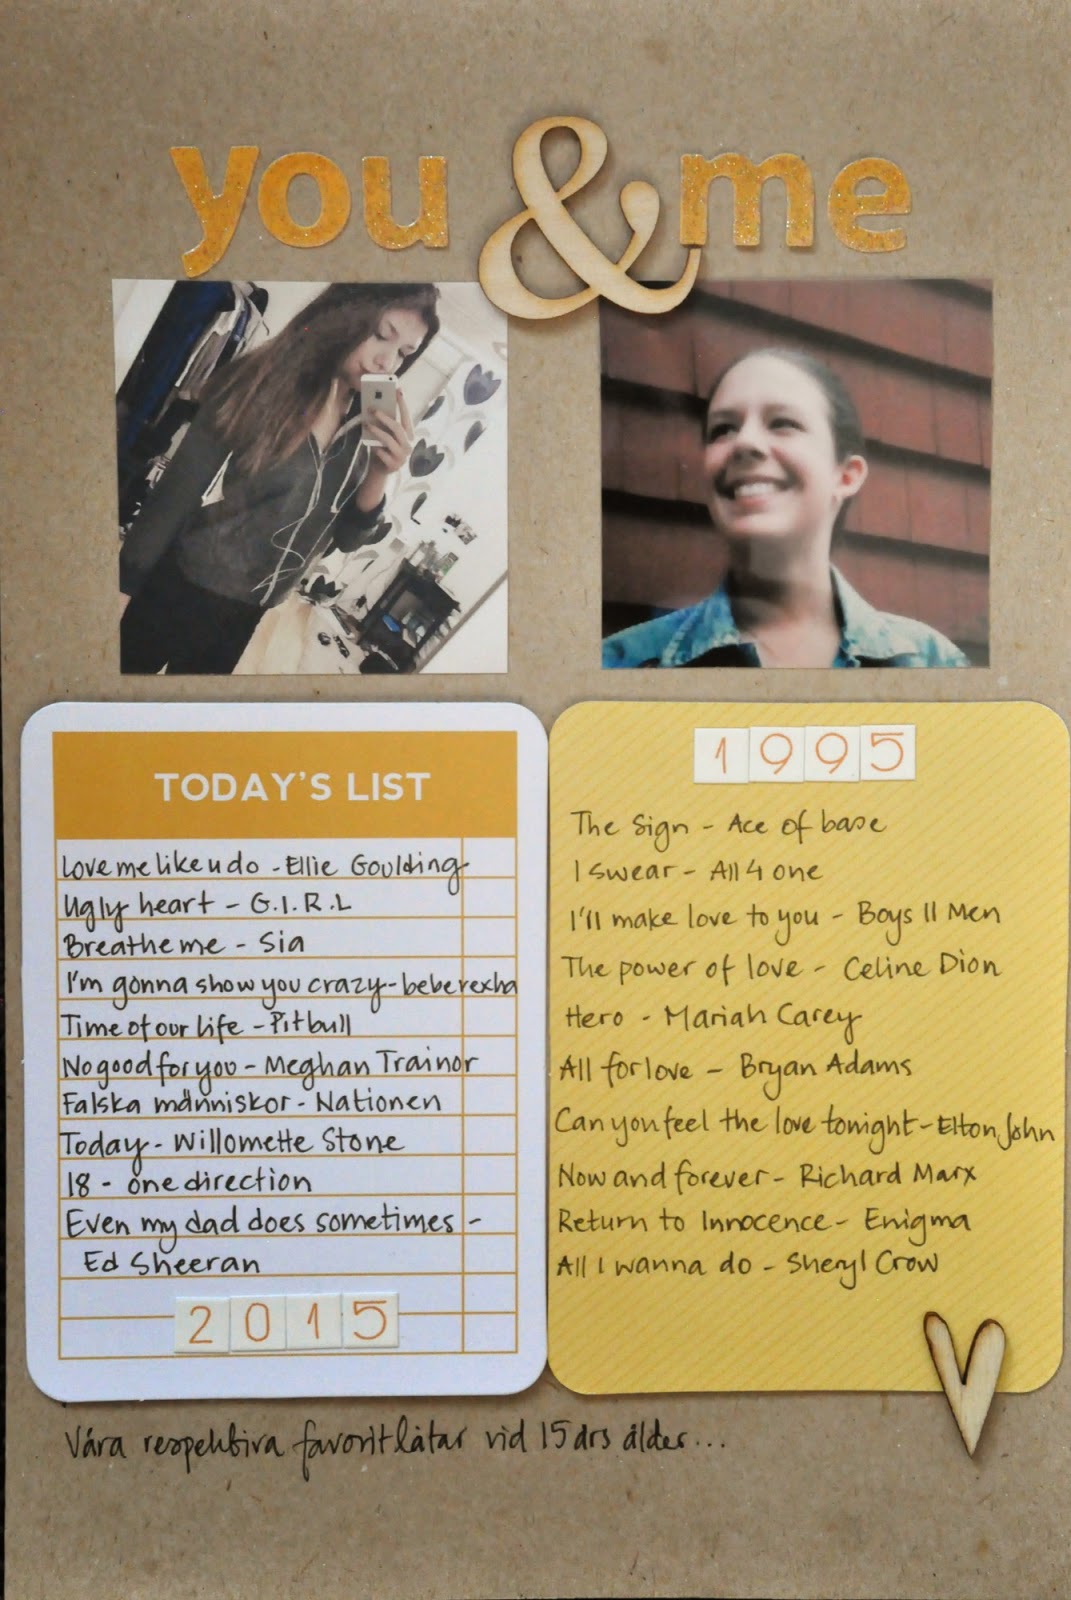 you & me
TODAY'S LIST
Love me like u do - Ellie Goulding
Ugly heart - G.I.R.L
Breathe me - Sia
I'm gonna show you crazy - bebe rexha
Time of our life - Pitbull
No good for you - Meghan Trainor
Falska människor - Nationen
Today - Willomette Stone
18 - one direction
Even my dad does sometimes -
Ed Sheeran
2015
1995
The Sign - Ace of base
I swear - All 4 one
I'll make love to you - Boys II Men
The power of love - Celine Dion
Hero - Mariah Carey
All for love - Bryan Adams
Can you feel the love tonight - Elton John
Now and forever - Richard Marx
Return to Innocence - Enigma
All I wanna do - Sheryl Crow
Våra respektiva favoritlåtar vid 15 års ålder...